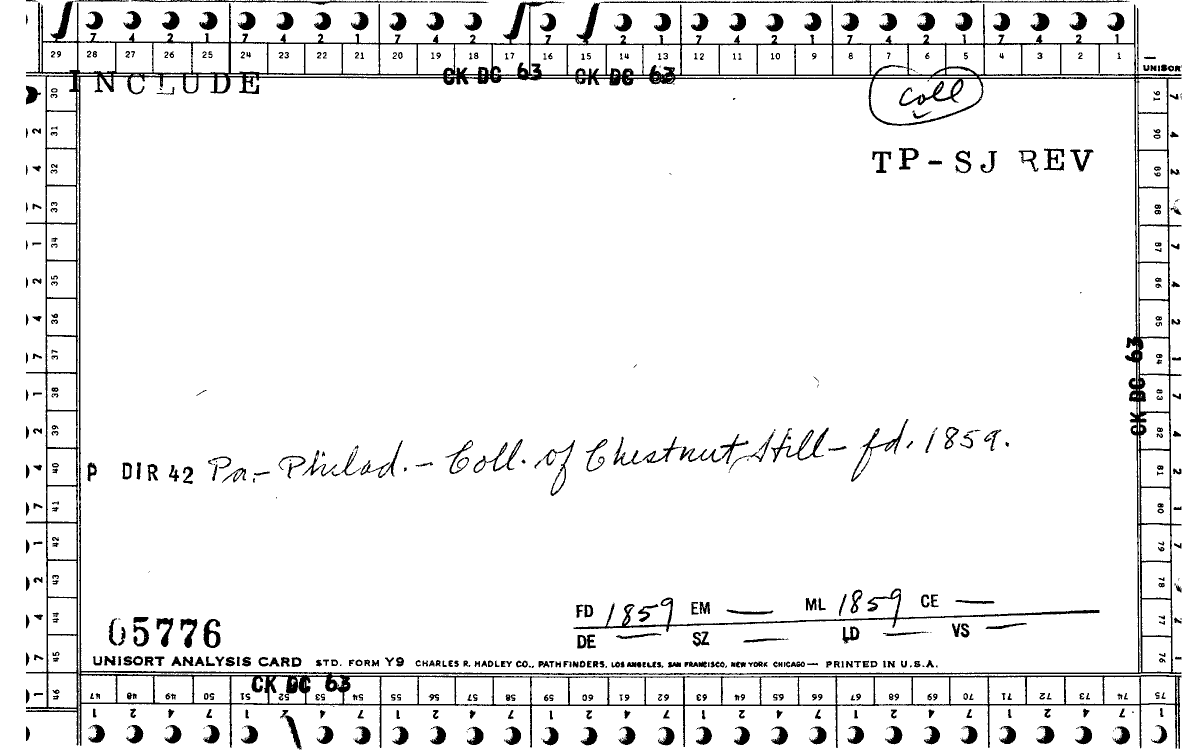 7 4 2 1 7 4 2 1 7 4 2 1 7 2 1 7 4 2 1 7 4 2 1 7 4 2 1
29 28 27 26 25 24 23 22 21 20 19 18 17 16 15 14 13 12 11 10 9 8 7 6 5 4 3 2 1
INCLUDE
CK DC 63 CK DC 63
UNISOR
coll
TP-SJ REV
30 31 32 33 34 35 36 37 38 39 40 41 42 43 44 45 46
2 4 7 1 2 4 7 1 2 4 7 1 2 4 7 1
91 90 89 88 87 86 85 84 83 82 81 80 79 78 77 76
CK DC 63
P DIR 42 Pa.- Philad. - Coll. of Chestnut Hill - fd. 1859.
FD 1859 EM — ML 1859 CE —
DE — SZ — LD — VS —
05776
UNISORT ANALYSIS CARD STD. FORM Y9 CHARLES R. HADLEY CO., PATHFINDERS, LOS ANGELES, SAN FRANCISCO, NEW YORK CHICAGO — PRINTED IN U.S.A.
CK DC 63
47 48 49 50 51 52 53 54 55 56 57 58 59 60 61 62 63 64 65 66 67 68 69 70 71 72 73 74 75
1 2 4 7 1 2 4 7 1 2 4 7 1 2 4 7 1 2 4 7 1 2 4 7 1 2 4 7 1